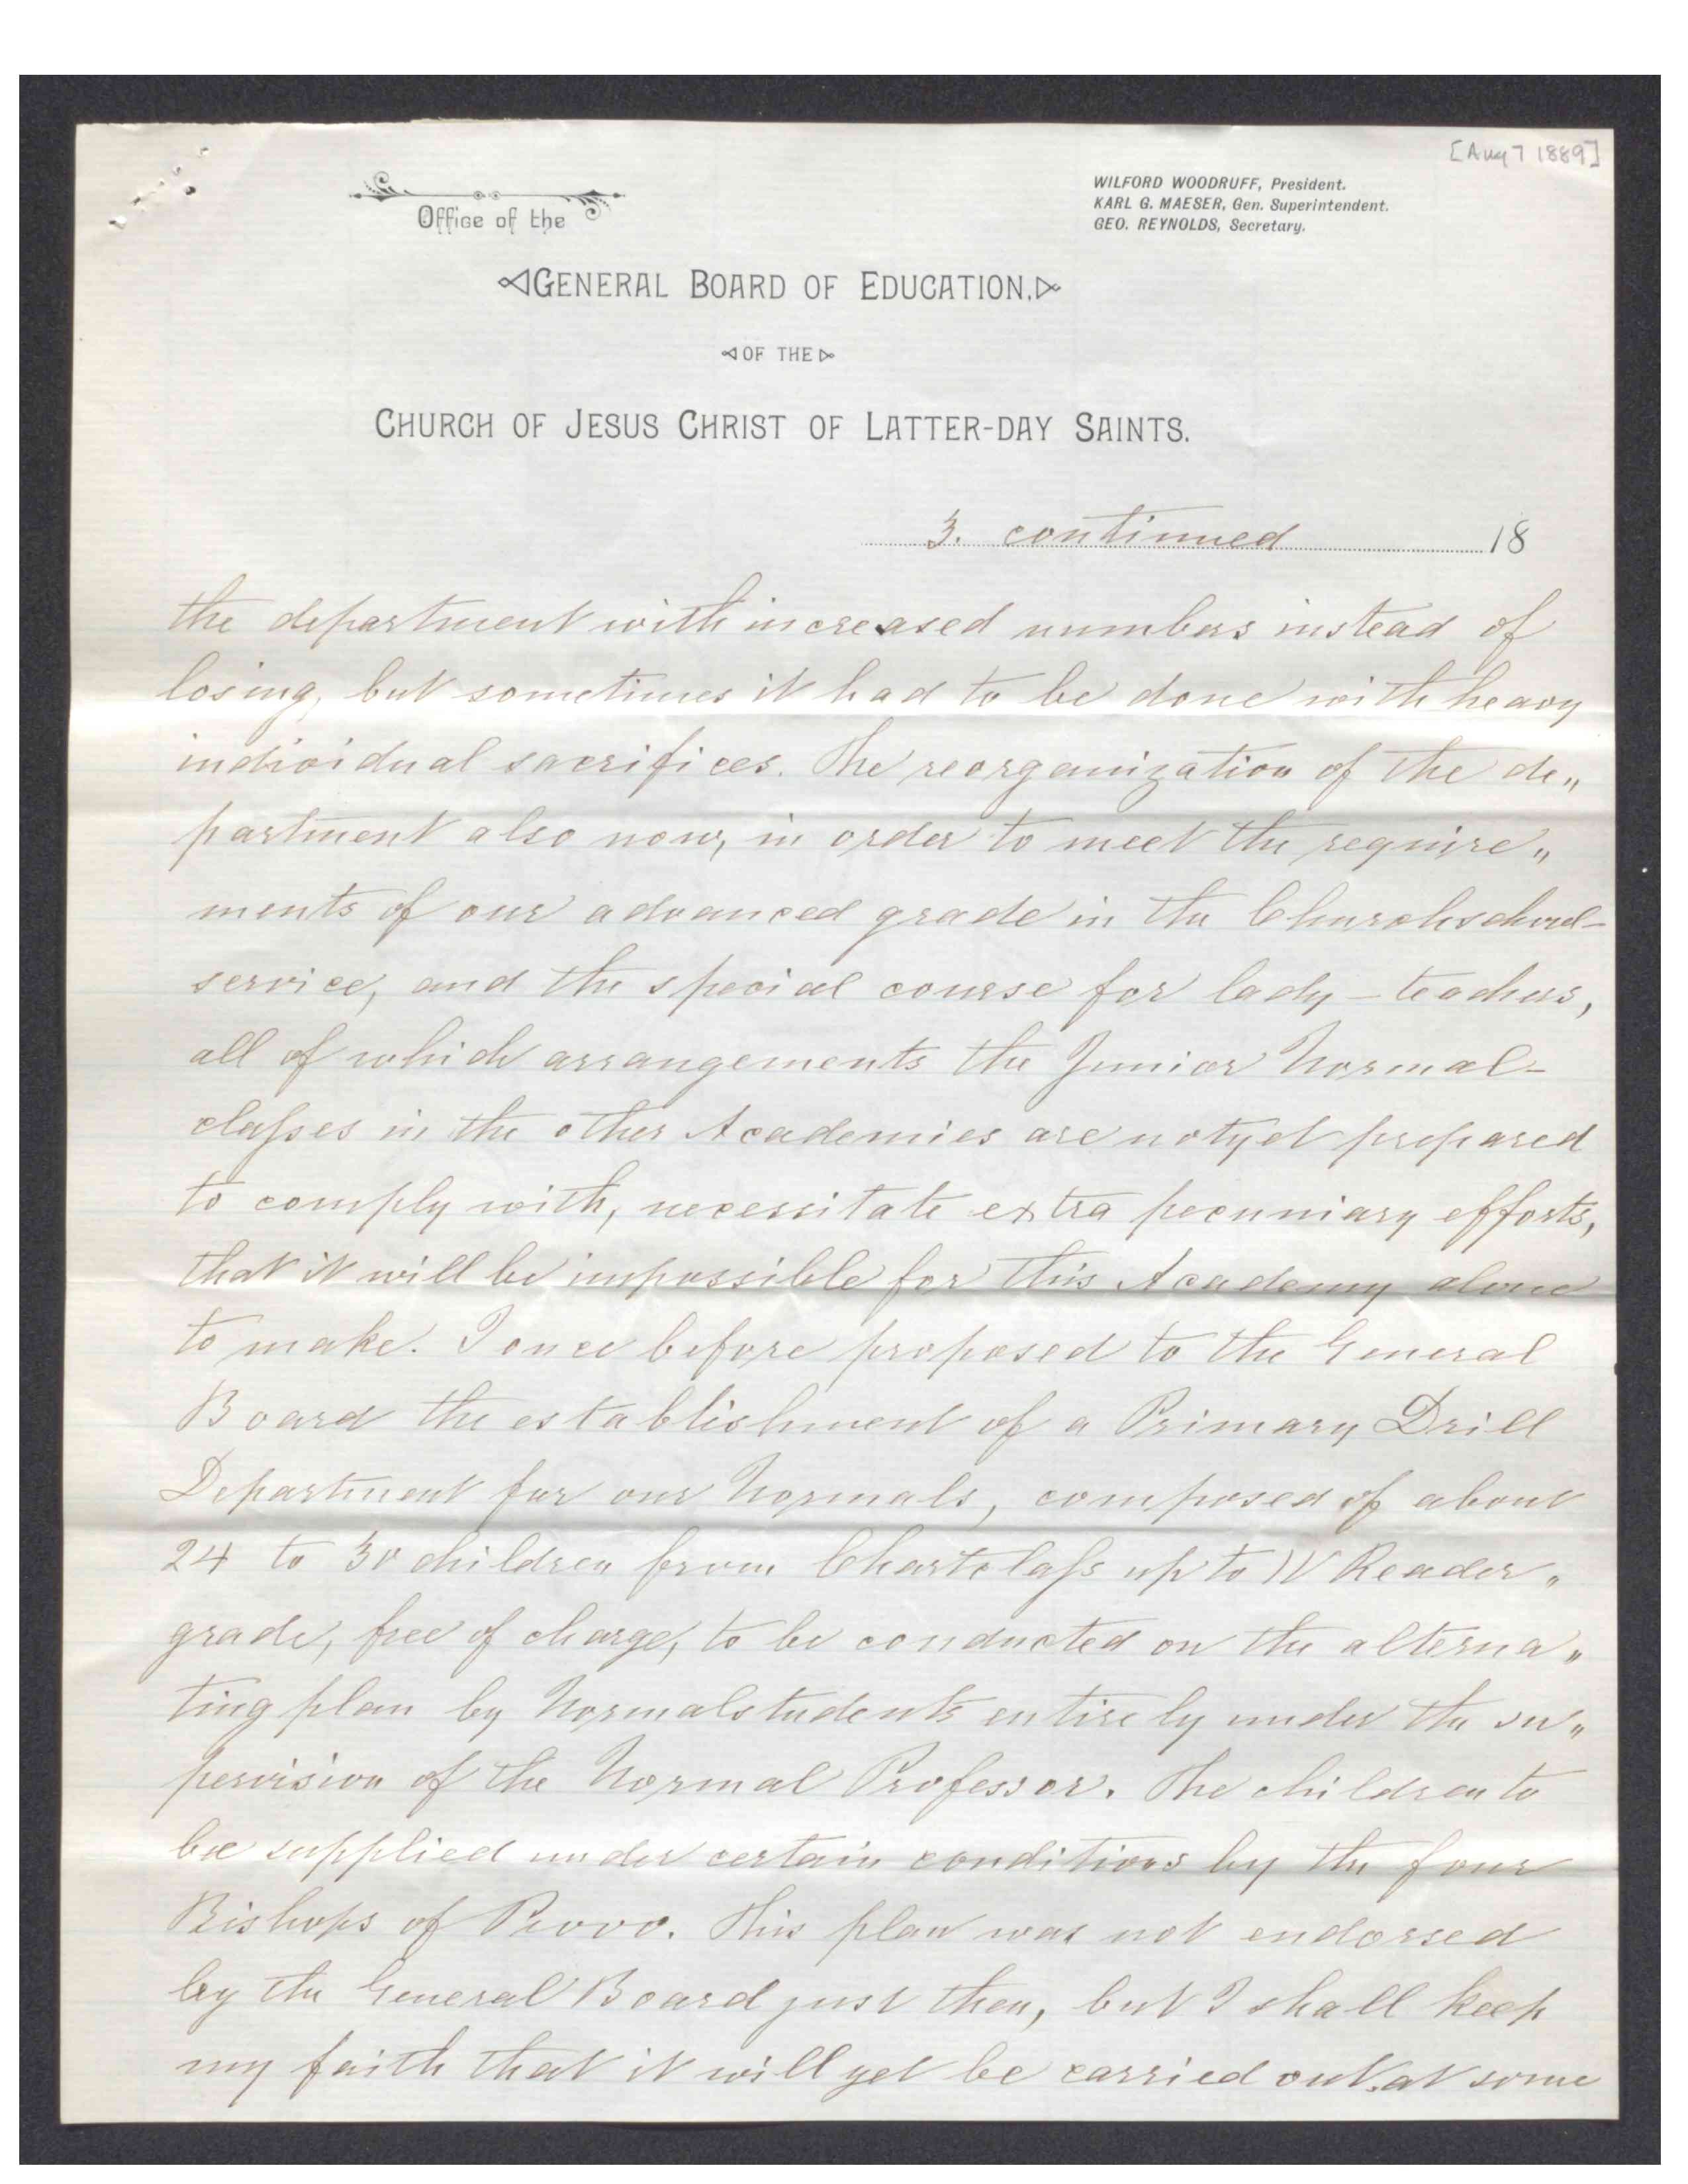 [Aug 7 1889]
WILFORD WOODRUFF, President.
KARL G. MAESER, Gen. Superintendent.
GEO. REYNOLDS, Secretary.
Office of the
GENERAL BOARD OF EDUCATION,
OF THE
CHURCH OF JESUS CHRIST OF LATTER-DAY SAINTS.
3. continued 18
the department with increased numbers instead of
losing, but sometimes it had to be done with heavy
individual sacrifices. The reorganization of the de„
partment also now, in order to meet the require„
ments of our advanced grade in the Churchschool-
service, and the special course for lady-teachers,
all of which arrangements the Junior Normal-
classes in the other Academies are not yet prepared
to comply with, necessitate extra pecuniary efforts,
that it will be impossible for this Academy alone
to make. I once before proposed to the General
Board the establishment of a Primary Drill
Department for our Normals, composed of about
24 to 30 children from Chartclass up to IV Reader„
grade, free of charge, to be conducted on the alterna„
ting plan by Normalstudents entirely under the su„
pervision of the Normal Professor. The children to
be supplied under certain conditions by the four
Bishops of Provo. This plan was not endorsed
by the General Board just then, but I shall keep
my faith that it will yet be carried out at some